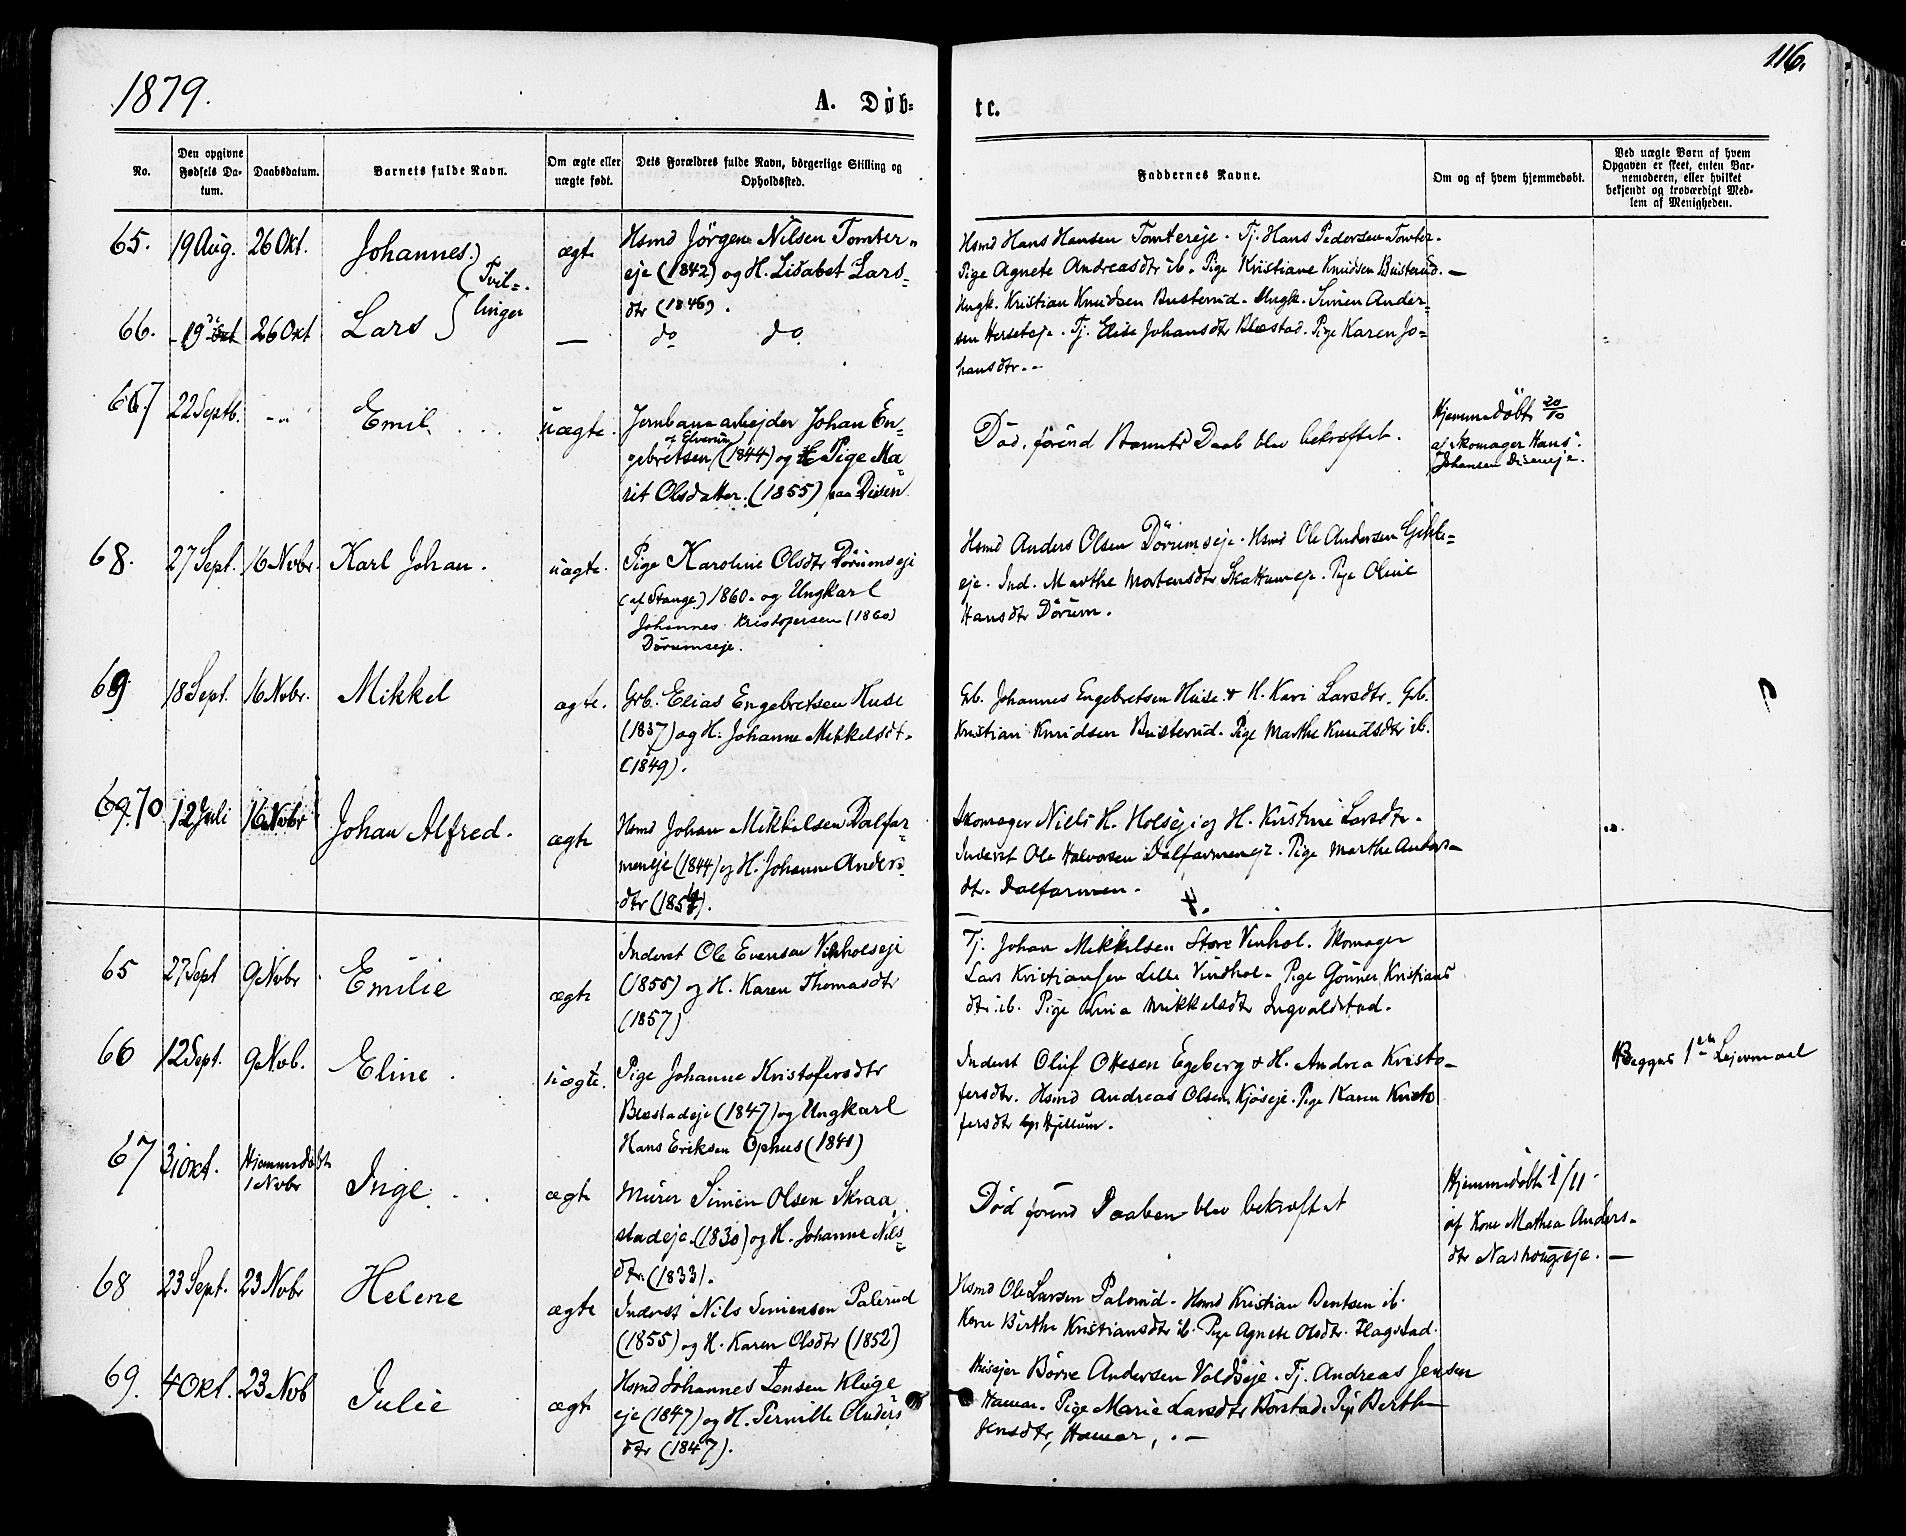 1879.
A. Døb-
te.
116.
No.
Den opgivne Fødsels Da-tum.
Daabsdatum.
Barnets fulde Navn.
Om ægte eller uægte født.
Dets Forældres fulde Navn, börgerlige Stilling og Opholdssted.
Faddernes Navne.
Om og af hvem hjemmedøbt.
Ved uægte Børn af hvem Opgaven er skeet, enten Bar-nemoderen, eller hvilket bekjendt og troværdigt Med-lem af Menigheden.
65. 19 Aug. 26 Okt. Johannes. Tvil-
linger
ægte
Hsmd Jörgen Nilsen Tomter-
eje (1842) og H. Lisabet Lars-
dtr (1846).
Hsmd Hans Hansen Tomtereje. Tj. Hans Pedersen Tomter.
Pige Agnete Andreasdtr ib. Pige Kristiane Knudsen Busterud. —
66. 19 26 Okt Lars
— do do
Ungk. Kristian Knudsen Busterud. Ungk. Simen Ander-
sen Hersæteje. Tj. Elise Johansdtr Blæstad. Pige Karen Jo-
hansdtr. -
67 22 Septb. - " Emil.
uægte.
Jernbanearbejder Johan En-
af Elverum
gebretsen (1844) og Pige Ma-
rit Olsdatter. (1855) paa Disen
Død, førend Barnets Daab blev bekræftet.
Hjemmedöbt 20/10
af Skomager Hans
Johansen Diseneje.
68. 27 Sept. 16 Novbr. Karl Johan.
uægte.
Pige Karoline Olsdtr Dörumseje
(af Stange) 1860. og Ungkarl
Johannes Kristofersen (1860)
Dörumseje.
Hsmd Anders Olsen Dörumseje. Hsmd Ole Andersen
eje. Ind. Marthe Mortensdtr Skattumeje. Pige Oline
Hansdtr Dörum.
69 18 Sept. 16 Novbr. Mikkel
ægte.
Grb. Elias Engebretsen Huse
(1837) og H. Johanne Mikkelsdt.
(1849).
Grb. Johannes Engebretsen Huse & H. Kari Larsdtr. Grb.
Kristian Knudsen Busterud. Pige Marthe Knudsdtr ib.
69. 70 12 Juli 16 Novbr Johan Alfred.
ægte
Hsmd Johan Mikkelsen Dalfar-
meneje (1844) og H. Johanne Anders-
dtr
Skomager Niels H. Holseje og H. Kristine Larsdtr.
Inderst Ole Halvorsen Dalfarmeneje. Pige Marthe Anders-
dtr. Dalfarmen.
65 27 Sept 9 Novbr Emilie
ægte
Inderst Ole Evensen Vinholseje
(1855) og H. Karen Thomasdtr
(1857)
Tj. Johan Mikkelsen Store Vinhol. Skomager
Lars Kristiansen Lille Vindhol. Pige Gunner Kristians
dtr. ib. Pige Lina Mikkelsdtr Ingvaldstad.
66 12 Sept. 9 Nob. Eline.
uægte.
Pige Johanne Kristofersdtr
Blæstadeje (1847) og Ungkarl
Hans Eriksen Ophus (1841)
Inderst Oluf Olesen Egeberg & H. Andrea Kristo-
fersdtr. Hsmd Andreas Olsen Kjöseje. Pige Karen Kristo
fersdtr Hjellum.
Begges 1ste Lejermaal
67 31 Okt. Hjemmedöbt
1 Novbr
Inge.
ægte
Murer Simen Olsen Skraa
stadeje. (1830) og H. Johanne Nils-
dtr. (1833).
Død førend Daaben blev bekræftet
Hjemmedöbt 1/11
af Kone Mathea Anders-
dtr Nashougeje. —
68 23 Sept. 23 Novbr Helene
ægte
Inderst Nils Simensen Palerud
(1855) og H. Karen Olsdtr (1852)
Hsmd Ole Larsen Palerud. Hsmd Kristian Bentsen ib.
Kone Birthe Kristiansdtr ib. Pige Agnete Olsdtr. Flagstad.
69. 4 Okt. 23 Nob Julie
ægte
Hsmd Johannes Jensen Kluge
eje (1847) og H. Pernille Anders
dtr (1847).
Husejer Börre Andersen Voldseje. Tj. Andreas Jensen
Hamar. Pige Marie Larsdtr Börstad. Pige Berthe
Jensdtr, Hamar, . —